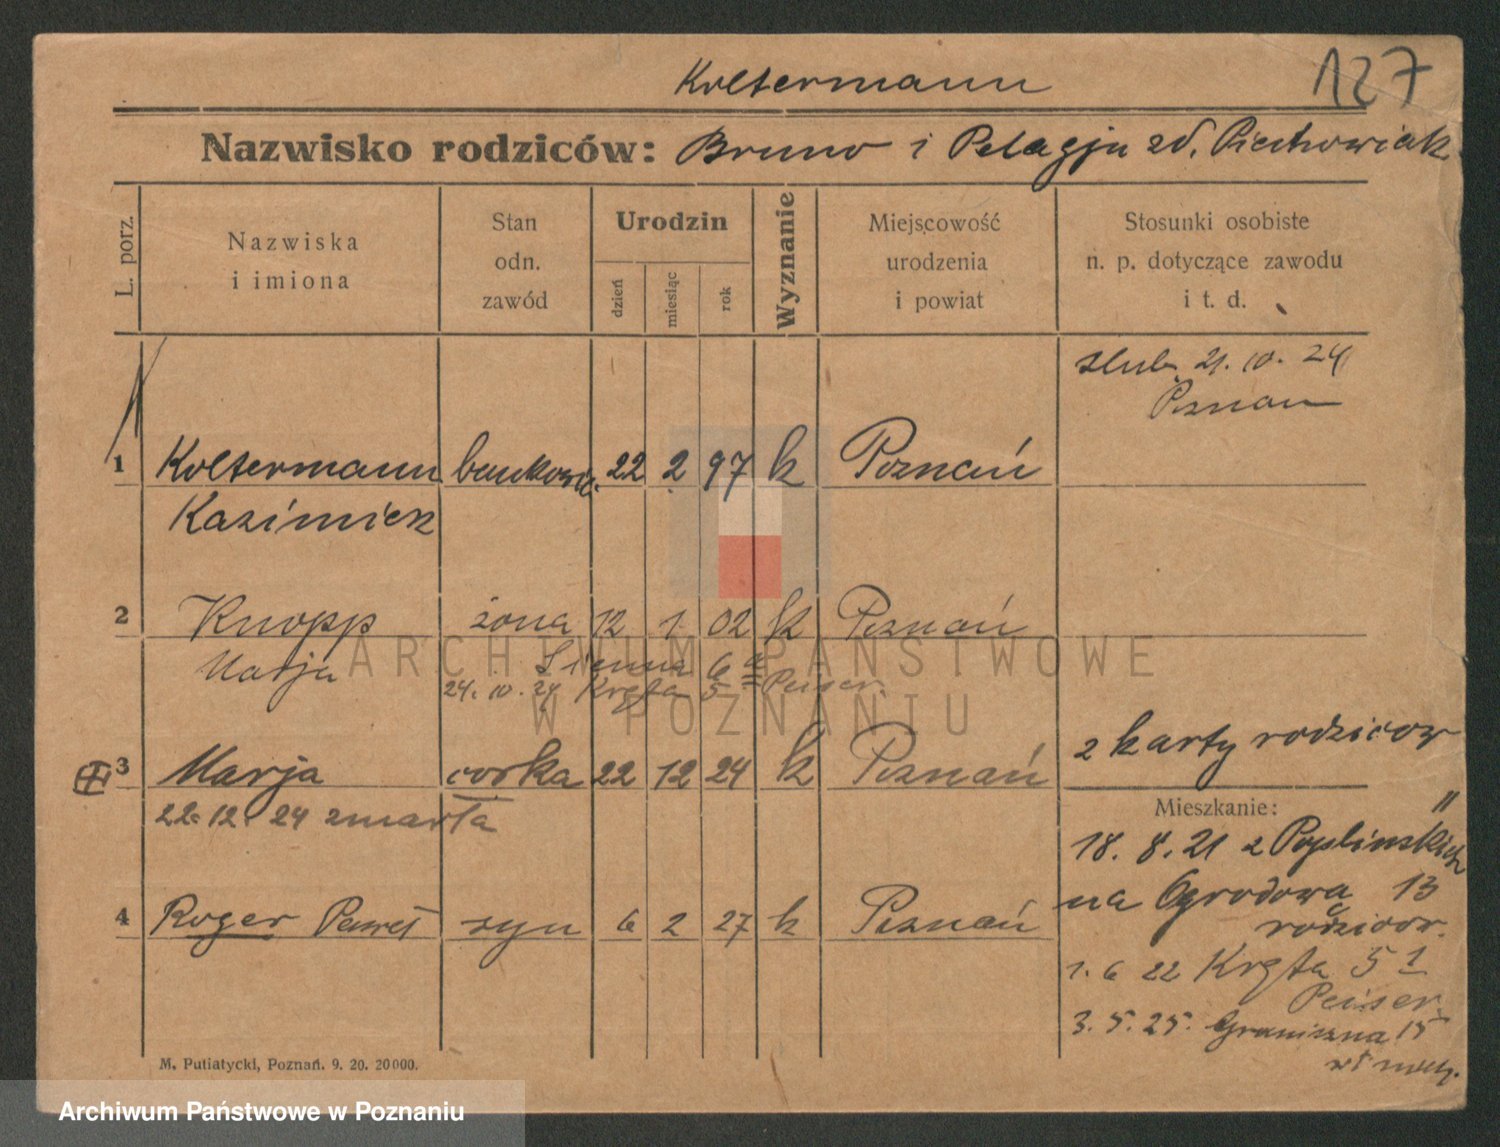 127
Koltermann
Nazwisko rodziców: Bruno i Pelagju zd. Piechowiak
L. porz.
Nazwiska
i imiona
Stan
odn.
zawód
Urodzin
dzień
miesiąc
rok
Wyznanie
Miejscowość
urodzenia
i powiat
Stosunki osobiste
n. p. dotyczące zawodu
i t. d.
slub 21. 10. 24
Poznan
1 Koltermann 22 2 97 k Poznań
Kazimierz
2 Knopp żona 12 1 02 k Poznań
Marja Sienna 6
24. 10. 24 Kręta 5 Peiser.
3 Marja corka 22 12 24 k Poznań
22. 12. 24 zmarła
2 karty rodzicow
Mieszkanie:
18. 8. 21 z Poplińskich
na Ogrodowa 13
rodzicow.
4 Roger Paweł syn 6 2 27 k Poznań
1. 6 22 Kręta 5 1
Peiser
3. 5. 25. Graniczna 15
M. Putiatycki, Poznań. 9. 20. 20000.
ARCHIWUM PAŃSTWOWE
W POZNANIU
Archiwum Państwowe w Poznaniu